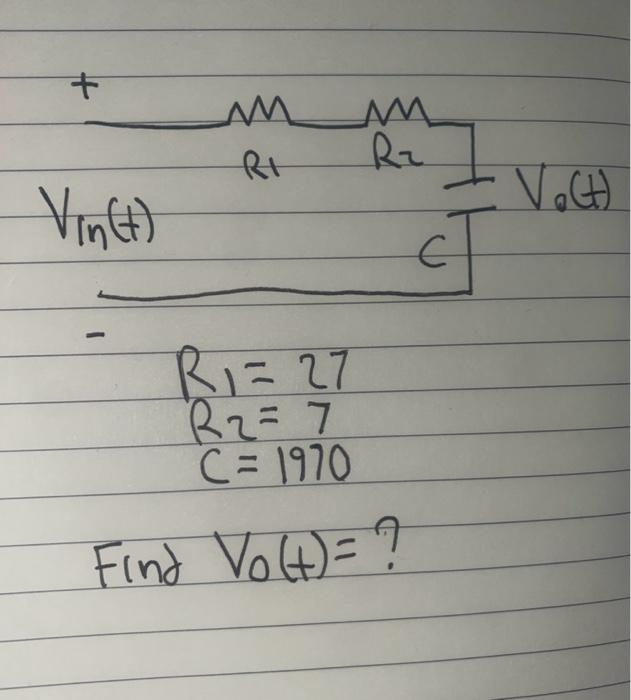 +
R1 R2
Vo(t)
Vin(t)
C
-
R1 = 27
R2 = 7
C = 1970
Find Vo(t) = ?